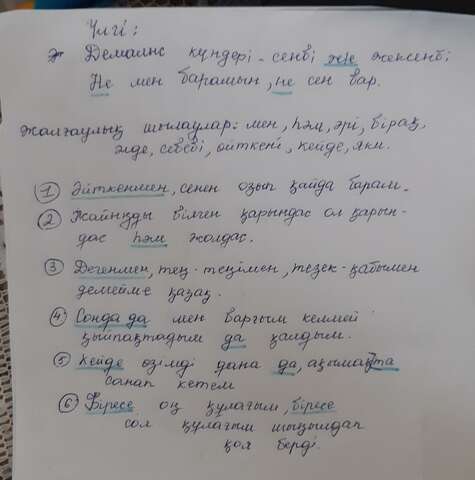 Үлгі:
Демалыс күндері - сенбі және жексенбі
Не мен барамын, не сен бар.
Жалғаулық шылаулар: мен, һәм, әрі, бірақ,
әлде, себебі, өйткені, кейде, яки.
① Әйткенмен, сенен озып қайда барам.
② Жайыңды білген қарындас ол қарын-
дас һәм жолдас.
③ Дегенмен, тең-теңімен, тезек-қабымен
демейме қазақ.
④ Сонда да мен барғым келмей
қыйпақтадым да қалдым.
⑤ Кейде өзімді дана да, ақымақ та
санап кетем
⑥ Біресе оң құлағым, біресе
сол құлағым шыңылдап
қоя берді.